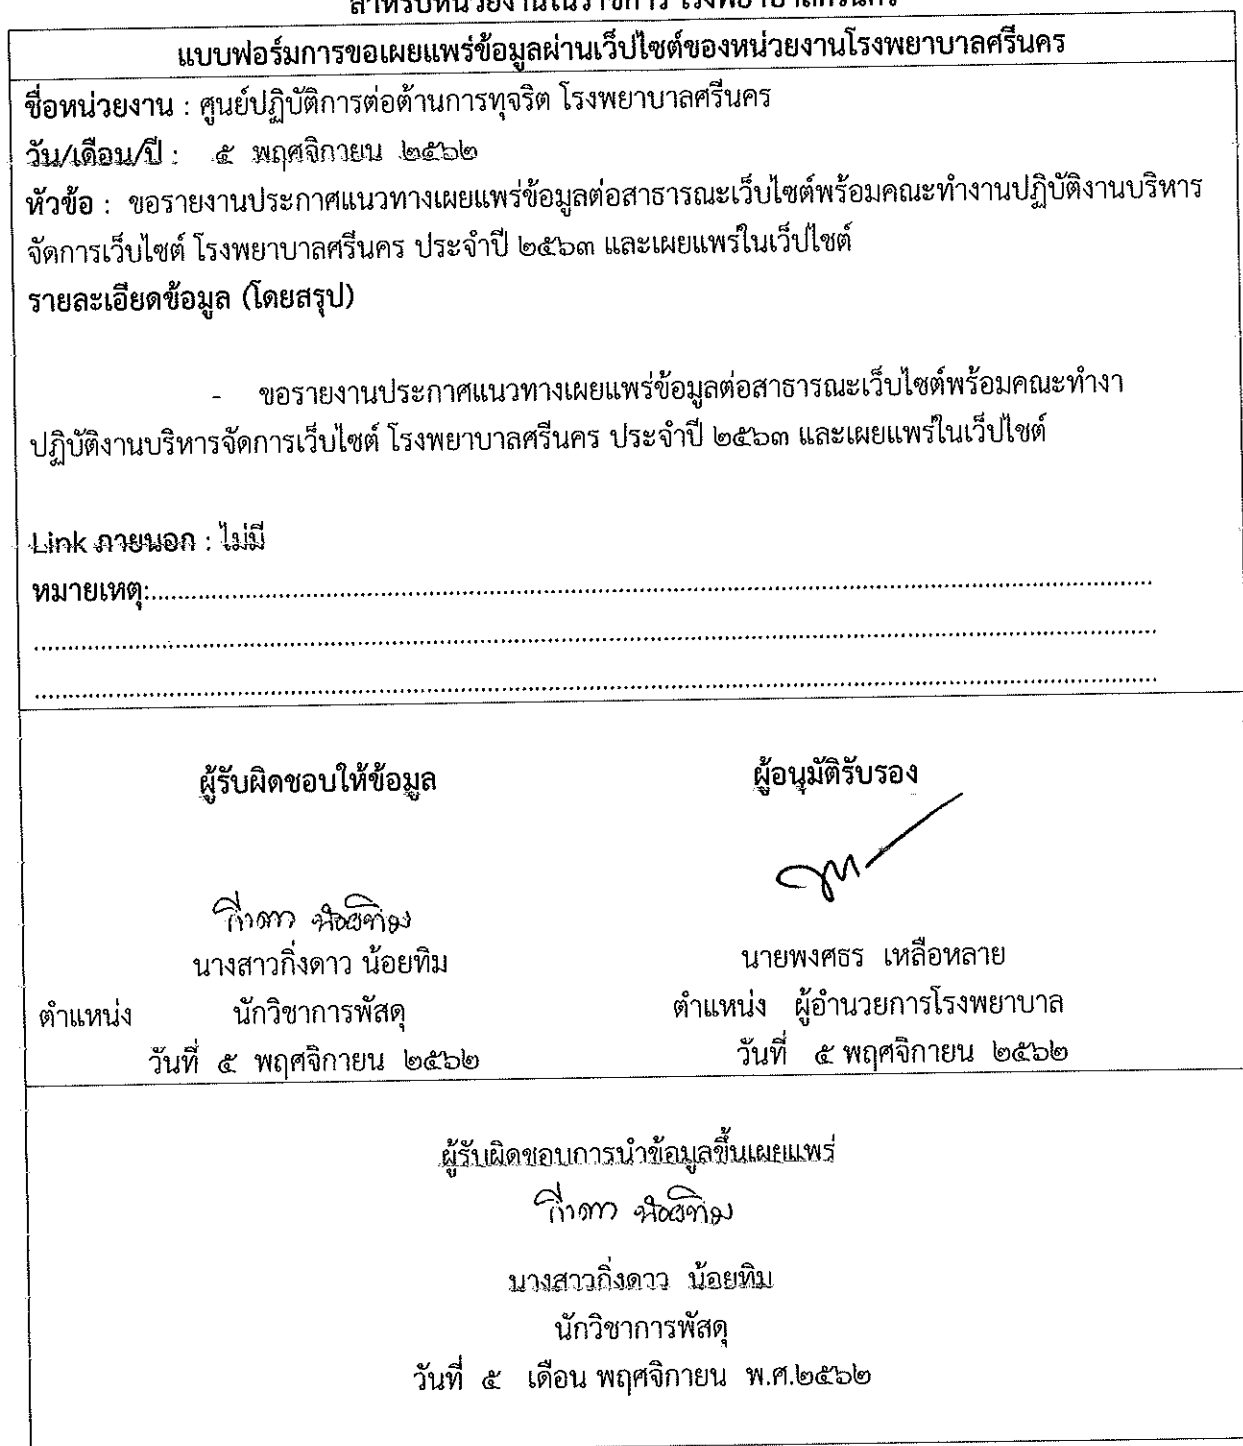 สำหรับหน่วยงานในราชการ โรงพยาบาลศรีนคร
แบบฟอร์มการขอเผยแพร่ข้อมูลผ่านเว็ปไซต์ของหน่วยงานโรงพยาบาลศรีนคร
ชื่อหน่วยงาน : ศูนย์ปฏิบัติการต่อต้านการทุจริต โรงพยาบาลศรีนคร
วัน/เดือน/ปี : ๕ พฤศจิกายน ๒๕๖๒
หัวข้อ : ขอรายงานประกาศแนวทางเผยแพร่ข้อมูลต่อสาธารณะเว็บไซต์พร้อมคณะทำงานปฏิบัติงานบริหาร
จัดการเว็บไซต์ โรงพยาบาลศรีนคร ประจำปี ๒๕๖๓ และเผยแพร่ในเว็ปไซต์
รายละเอียดข้อมูล (โดยสรุป)
- ขอรายงานประกาศแนวทางเผยแพร่ข้อมูลต่อสาธารณะเว็บไซต์พร้อมคณะทำงา
ปฏิบัติงานบริหารจัดการเว็บไซต์ โรงพยาบาลศรีนคร ประจำปี ๒๕๖๓ และเผยแพร่ในเว็ปไซต์
Link ภายนอก : ไม่มี
หมายเหตุ:..........................................................................................
..........................................................................................
..........................................................................................
ผู้รับผิดชอบให้ข้อมูล ผู้อนุมัติรับรอง
กิ่งดาว น้อยทิม
นางสาวกิ่งดาว น้อยทิม นายพงศธร เหลือหลาย
ตำแหน่ง นักวิชาการพัสดุ ตำแหน่ง ผู้อำนวยการโรงพยาบาล
วันที่ ๕ พฤศจิกายน ๒๕๖๒ วันที่ ๕ พฤศจิกายน ๒๕๖๒
ผู้รับผิดชอบการนำข้อมูลขึ้นเผยแพร่
กิ่งดาว น้อยทิม
นางสาวกิ่งดาว น้อยทิม
นักวิชาการพัสดุ
วันที่ ๕ เดือน พฤศจิกายน พ.ศ.๒๕๖๒